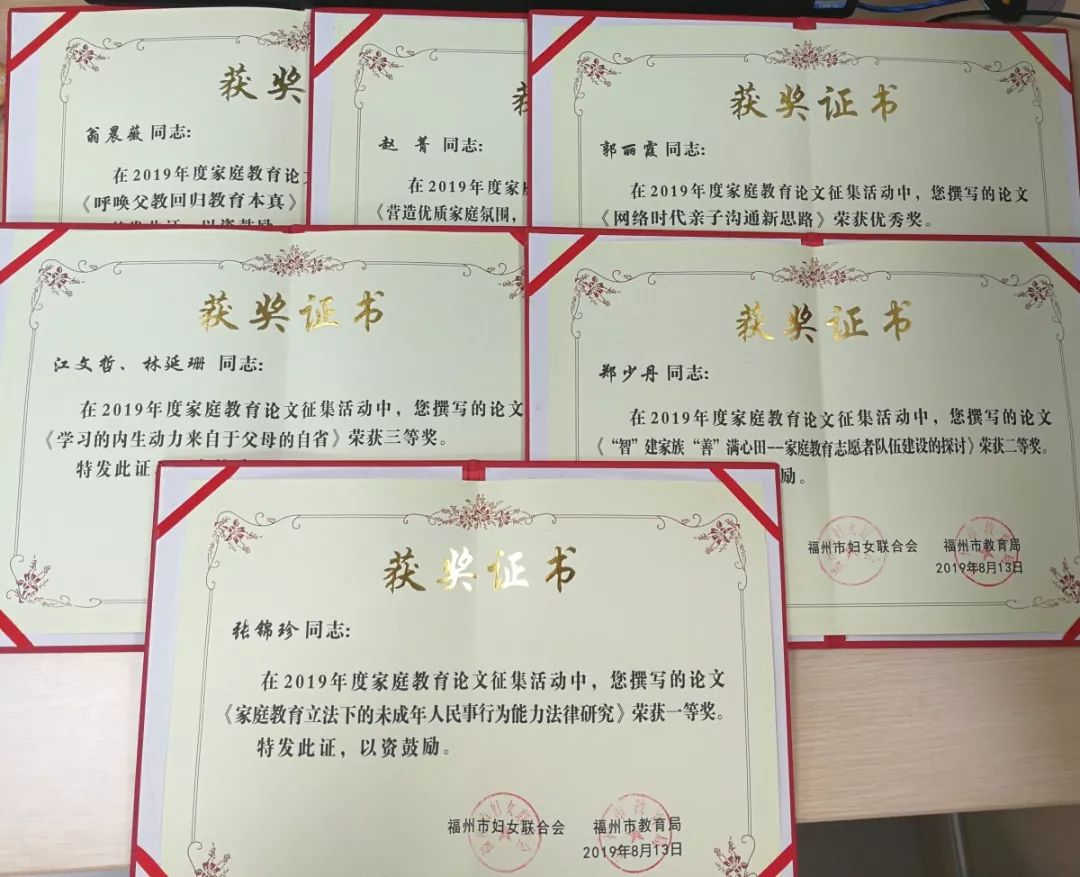 获奖
翁晨薇 同志:
在2019年度家庭教育论文
《呼唤父教回归教育本真》
以资鼓励
赵菁 同志:
在2019年度家庭
《营造优质家庭氛围,
获奖证书
郭丽霞 同志:
在2019年度家庭教育论文征集活动中，您撰写的论文
《网络时代亲子沟通新思路》荣获优秀奖。
获奖证书
江文哲、林延珊 同志:
在2019年度家庭教育论文征集活动中，您撰写的论文
《学习的内生动力来自于父母的自省》荣获三等奖。
特发此证
获奖证书
郑少丹 同志:
在2019年度家庭教育论文征集活动中，您撰写的论文
《“智”建家族“善”满心田--家庭教育志愿者队伍建设的探讨》荣获二等奖。
励。
福州市妇女联合会 福州市教育局
2019年8月13日
获奖证书
张锦珍 同志:
在2019年度家庭教育论文征集活动中，您撰写的论文
《家庭教育立法下的未成年人民事行为能力法律研究》荣获一等奖。
特发此证，以资鼓励。
福州市妇女联合会 福州市教育局
2019年8月13日